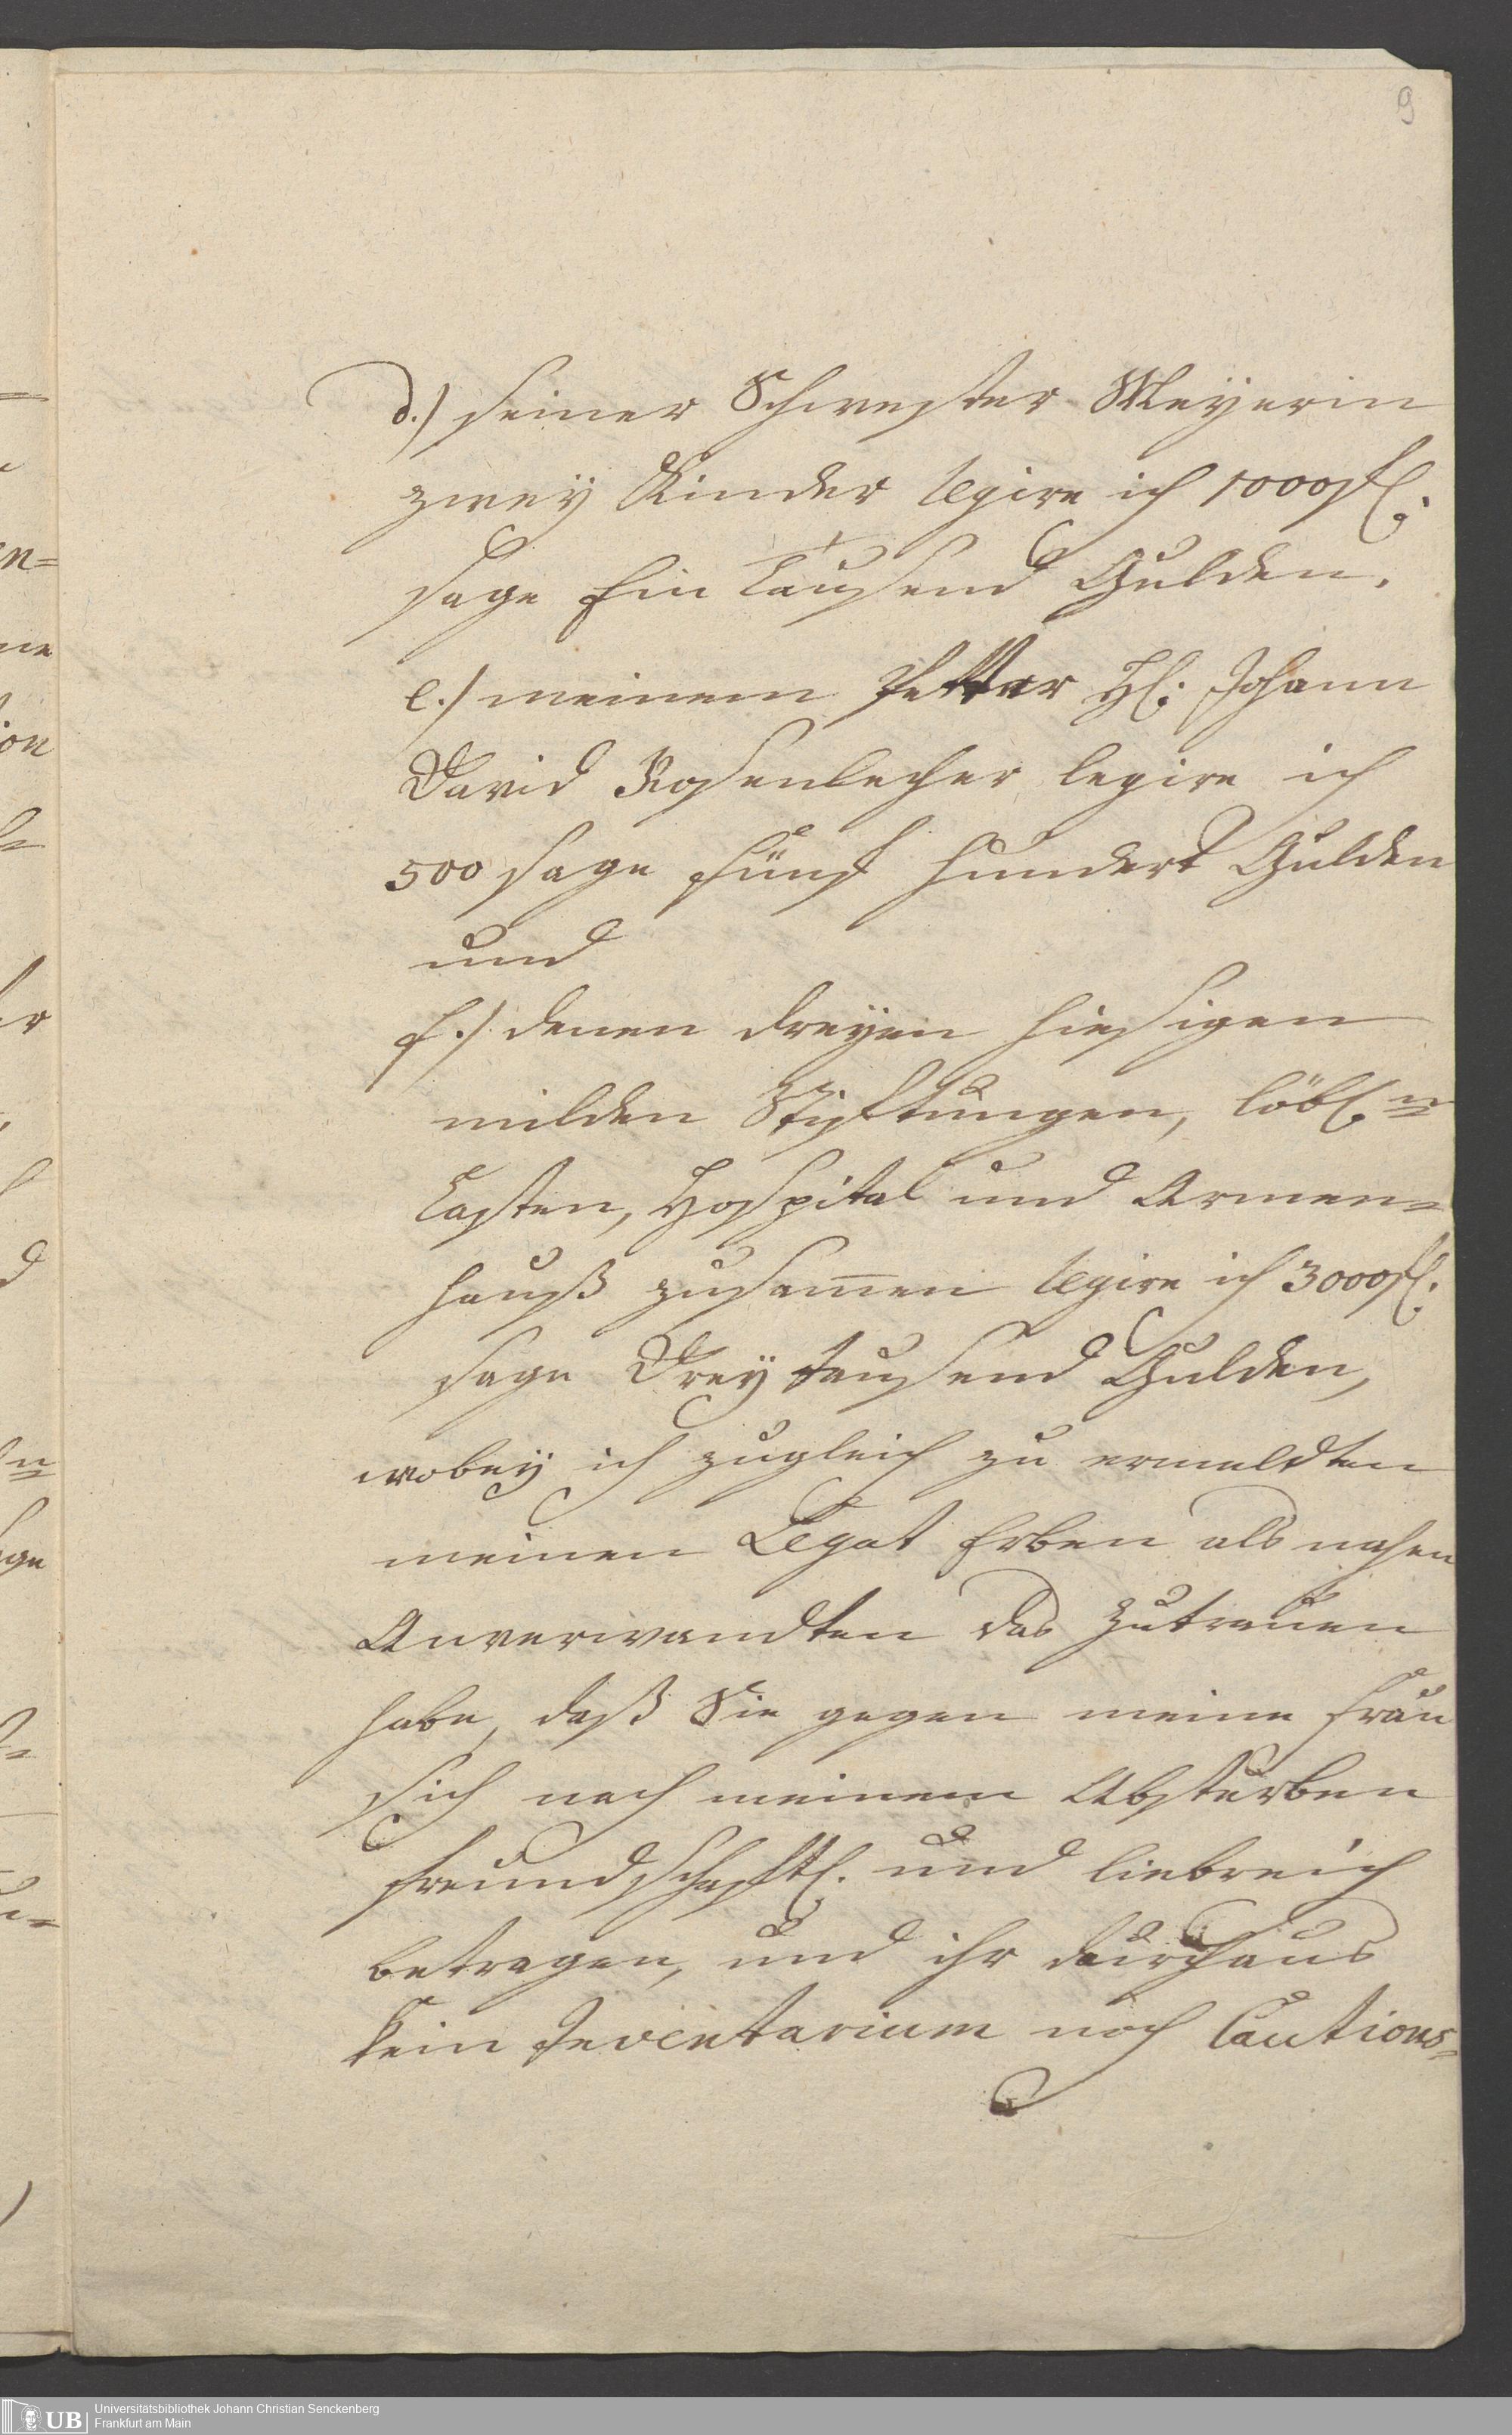 9
d.) seiner Schwester Meyerin
zwey Kinder legire ich 1000 fl.
sage Ein Tausend Gulden.
e.) meinem Petter H: Johann
David Rosenlecher legire ich
500 sage fünf hundert Gulden
und
f.) denen dreyen hiesigen
milden Stiftungen, löbl:n
Casten, Hospital und Armen=
hauß zusam̄en legire ich 3000 fl.
sage Drey tausend Gulden,
wobey ich zugleich zu ermeldten
meinen Legat Erben als nahen
Anverwandten das Zutrauen
habe, daß Sie gegen meine Frau
sich nach meinem Absterben
freundschaftl. und liebreich
betragen, und ihr durchaus
kein Inventarium noch Cautions=
Universitätsbibliothek Johann Christian Senckenberg
Frankfurt am Main
UB